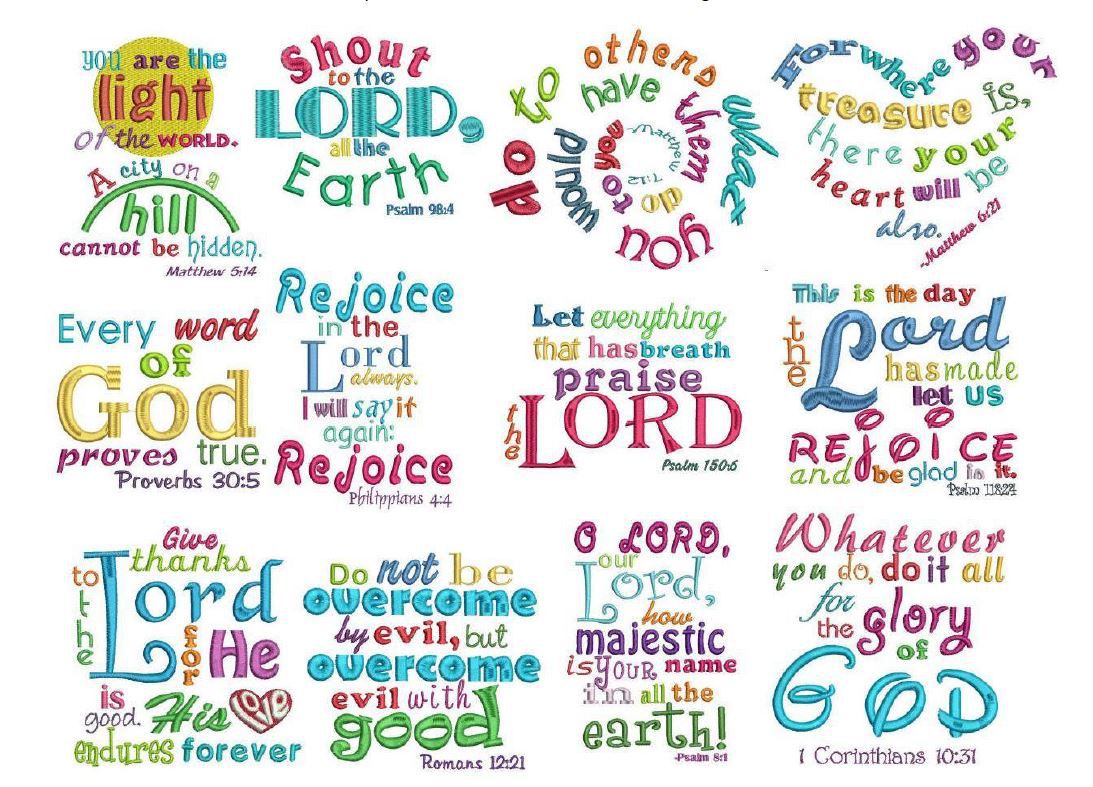 you are the
light
of the WORLD.
A city on a
hill
cannot be hidden.
Matthew 5:14
Shout
to the
LORD,
all the
Earth
Psalm 98:4
do to others what
you would have them
do to you
Matthew 7:12
For where your
treasure is,
there your
heart will be
also.
-Matthew 6:21
Every word
of
God
proves true.
Proverbs 30:5
Rejoice
in the
Lord
always.
I will say it
again:
Rejoice
Philippians 4:4
Let everything
that has breath
praise
the LORD
Psalm 150:6
This is the day
the Lord
has made
let us
REJOICE
and be glad in it.
Psalm 118:24
Give
thanks
to the Lord
for He
is
good. His Love
endures forever
Do not be
overcome
by evil, but
overcome
evil with
good
Romans 12:21
O LORD,
our
Lord,
how
majestic
is YOUR name
in all the
earth!
-Psalm 8:1
Whatever
you do, do it all
for
the glory
of
GOD
1 Corinthians 10:31